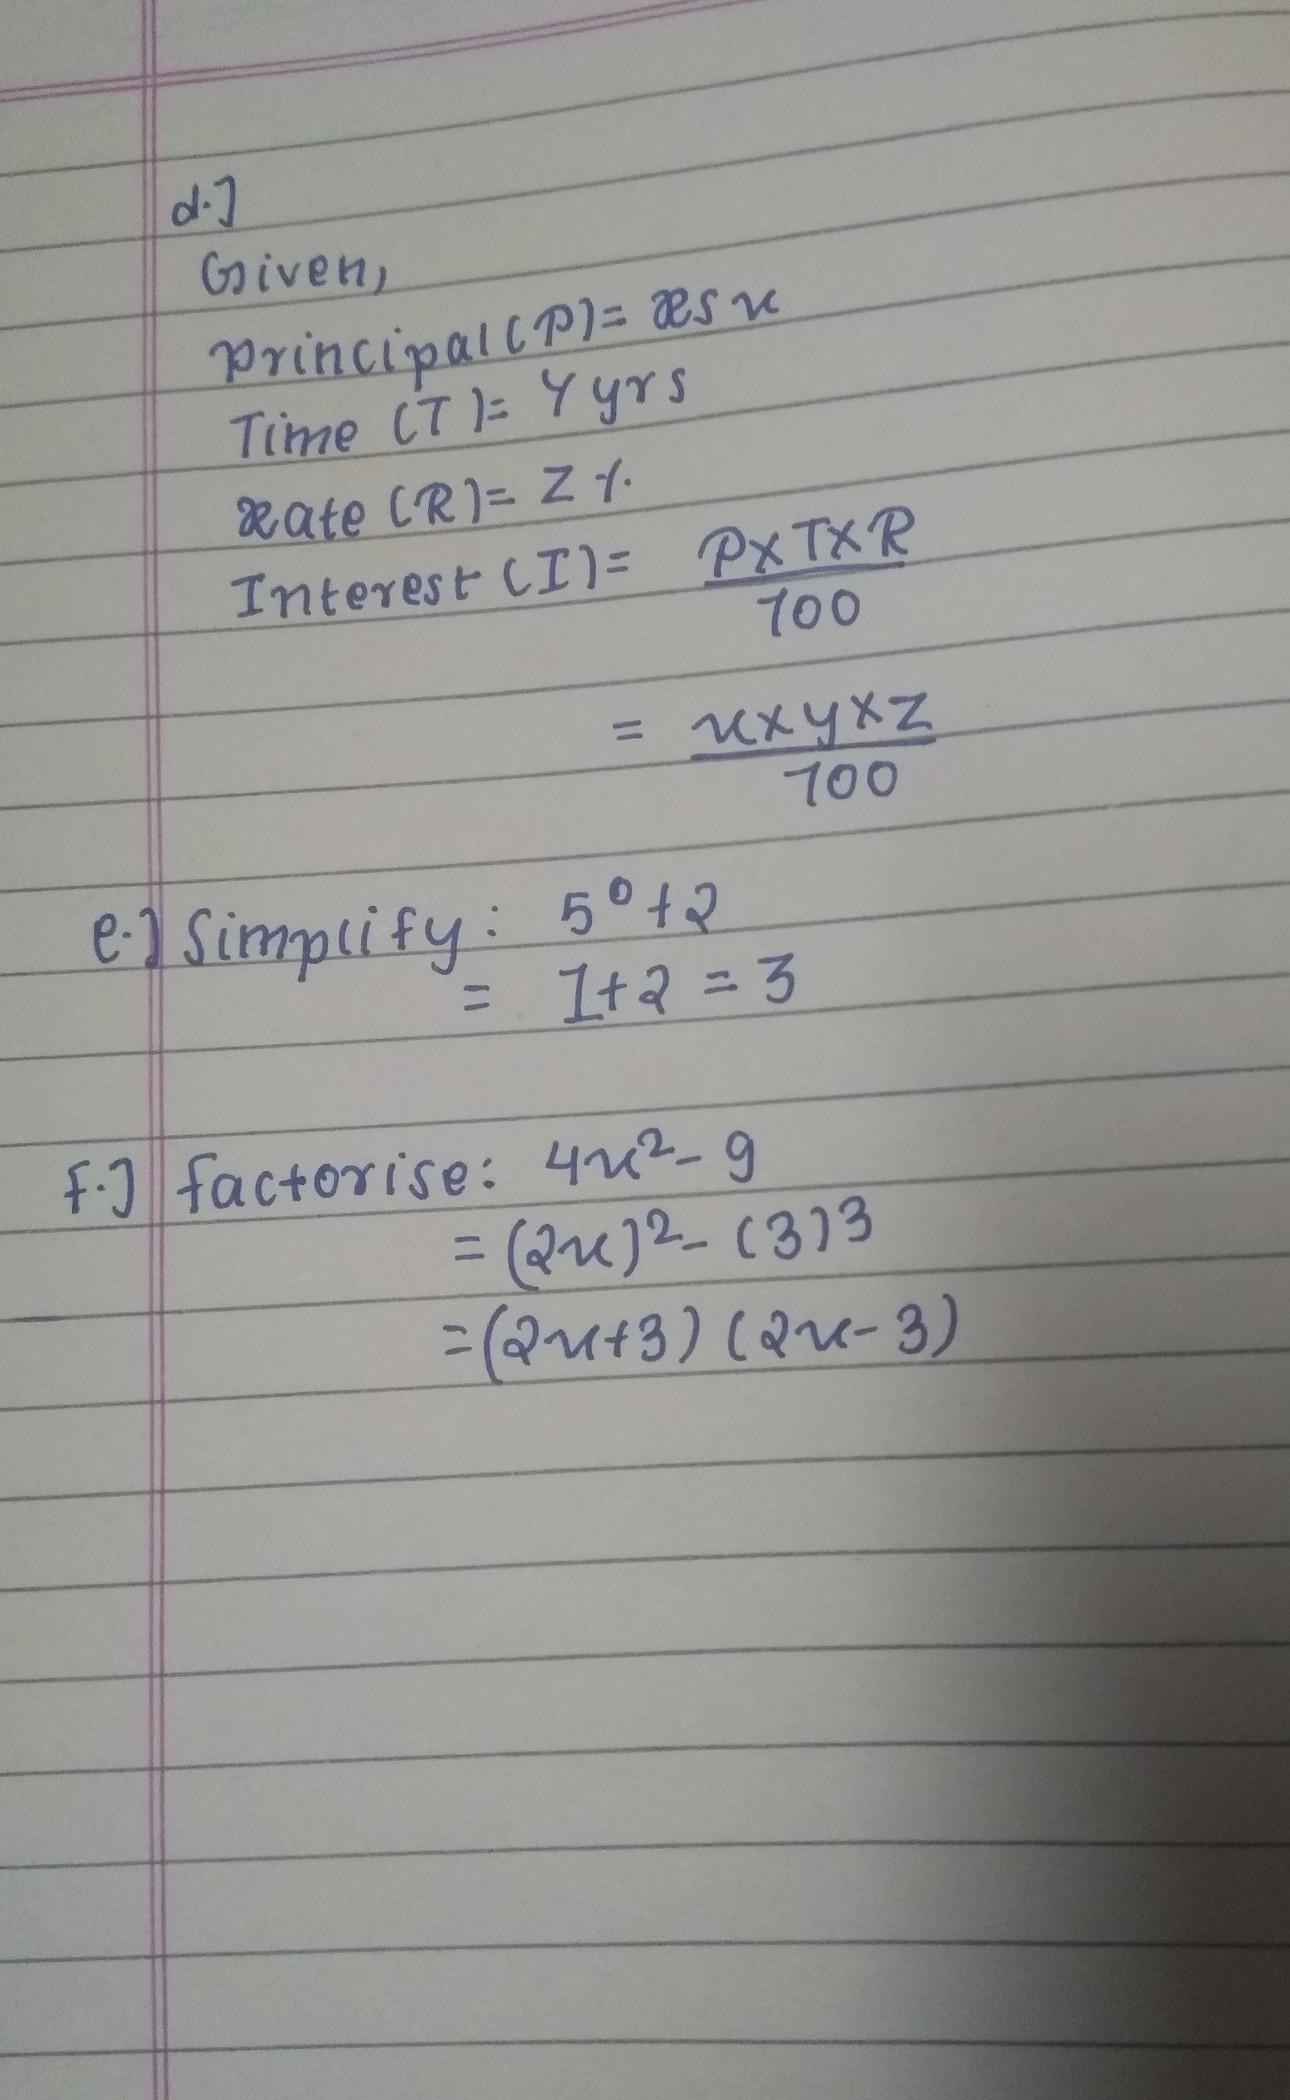 d.]
Given,
Principal (P) = Rs x
Time (T) = Y yrs
Rate (R) = Z %
Interest (I) = P×T×R
100
= x×y×z
100
e.] Simplify: 5⁰+2
= 1+2 = 3
f.] factorise: 4x²-9
= (2x)²- (3)³
= (2x+3) (2x-3)